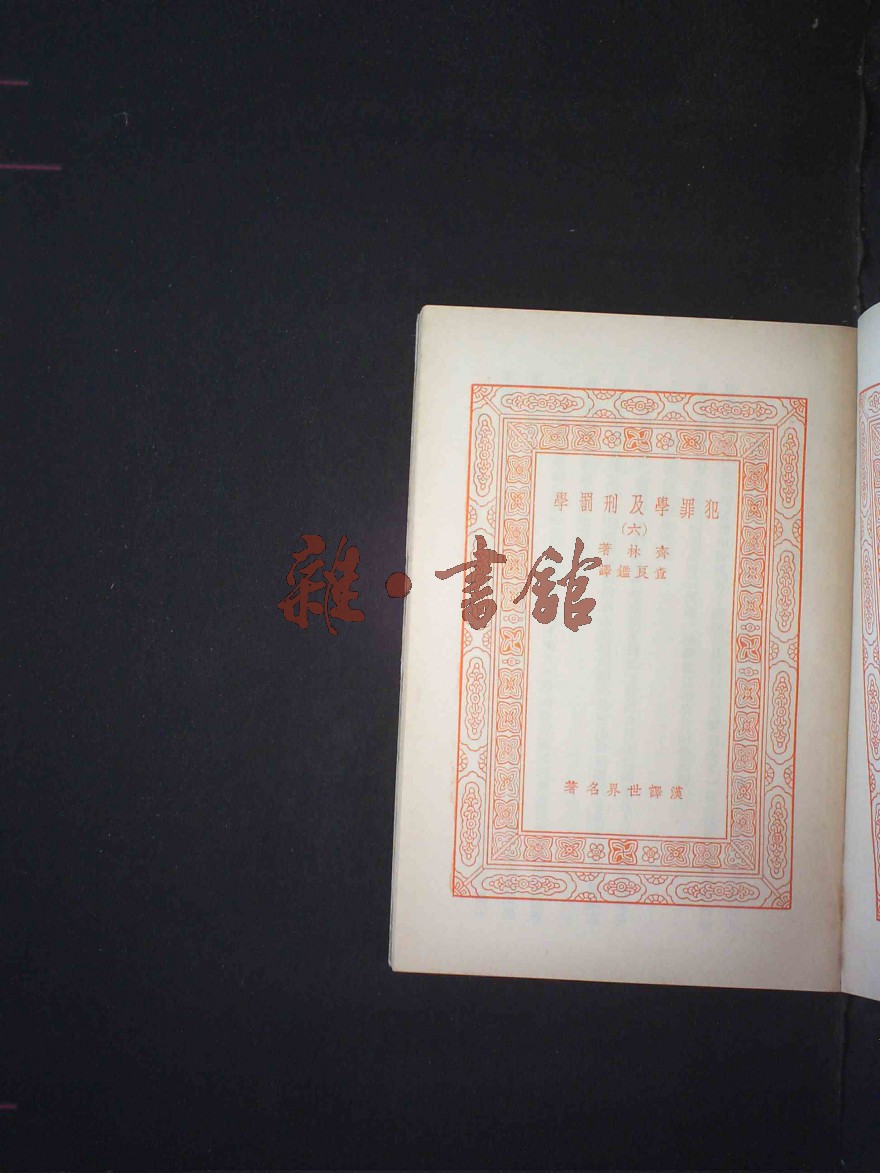 犯罪學及刑罰學
(六)
齊林著
查良鑑譯
雜·書館
漢譯世界名著